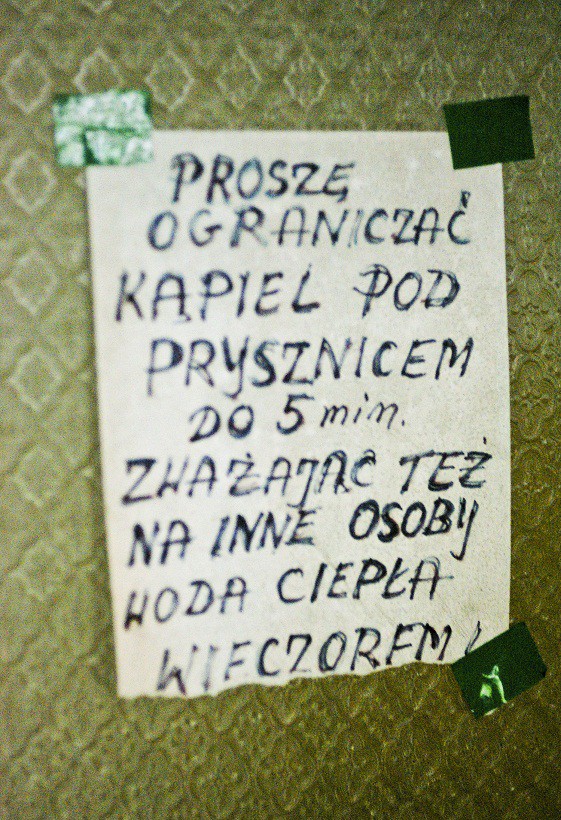 PROSZĘ
OGRANICZAĆ
KĄPIEL POD
PRYSZNICEM
DO 5 min.
ZWAŻAJĄC TEŻ
NA INNE OSOBY
WODA CIEPŁA
WIECZOREM!